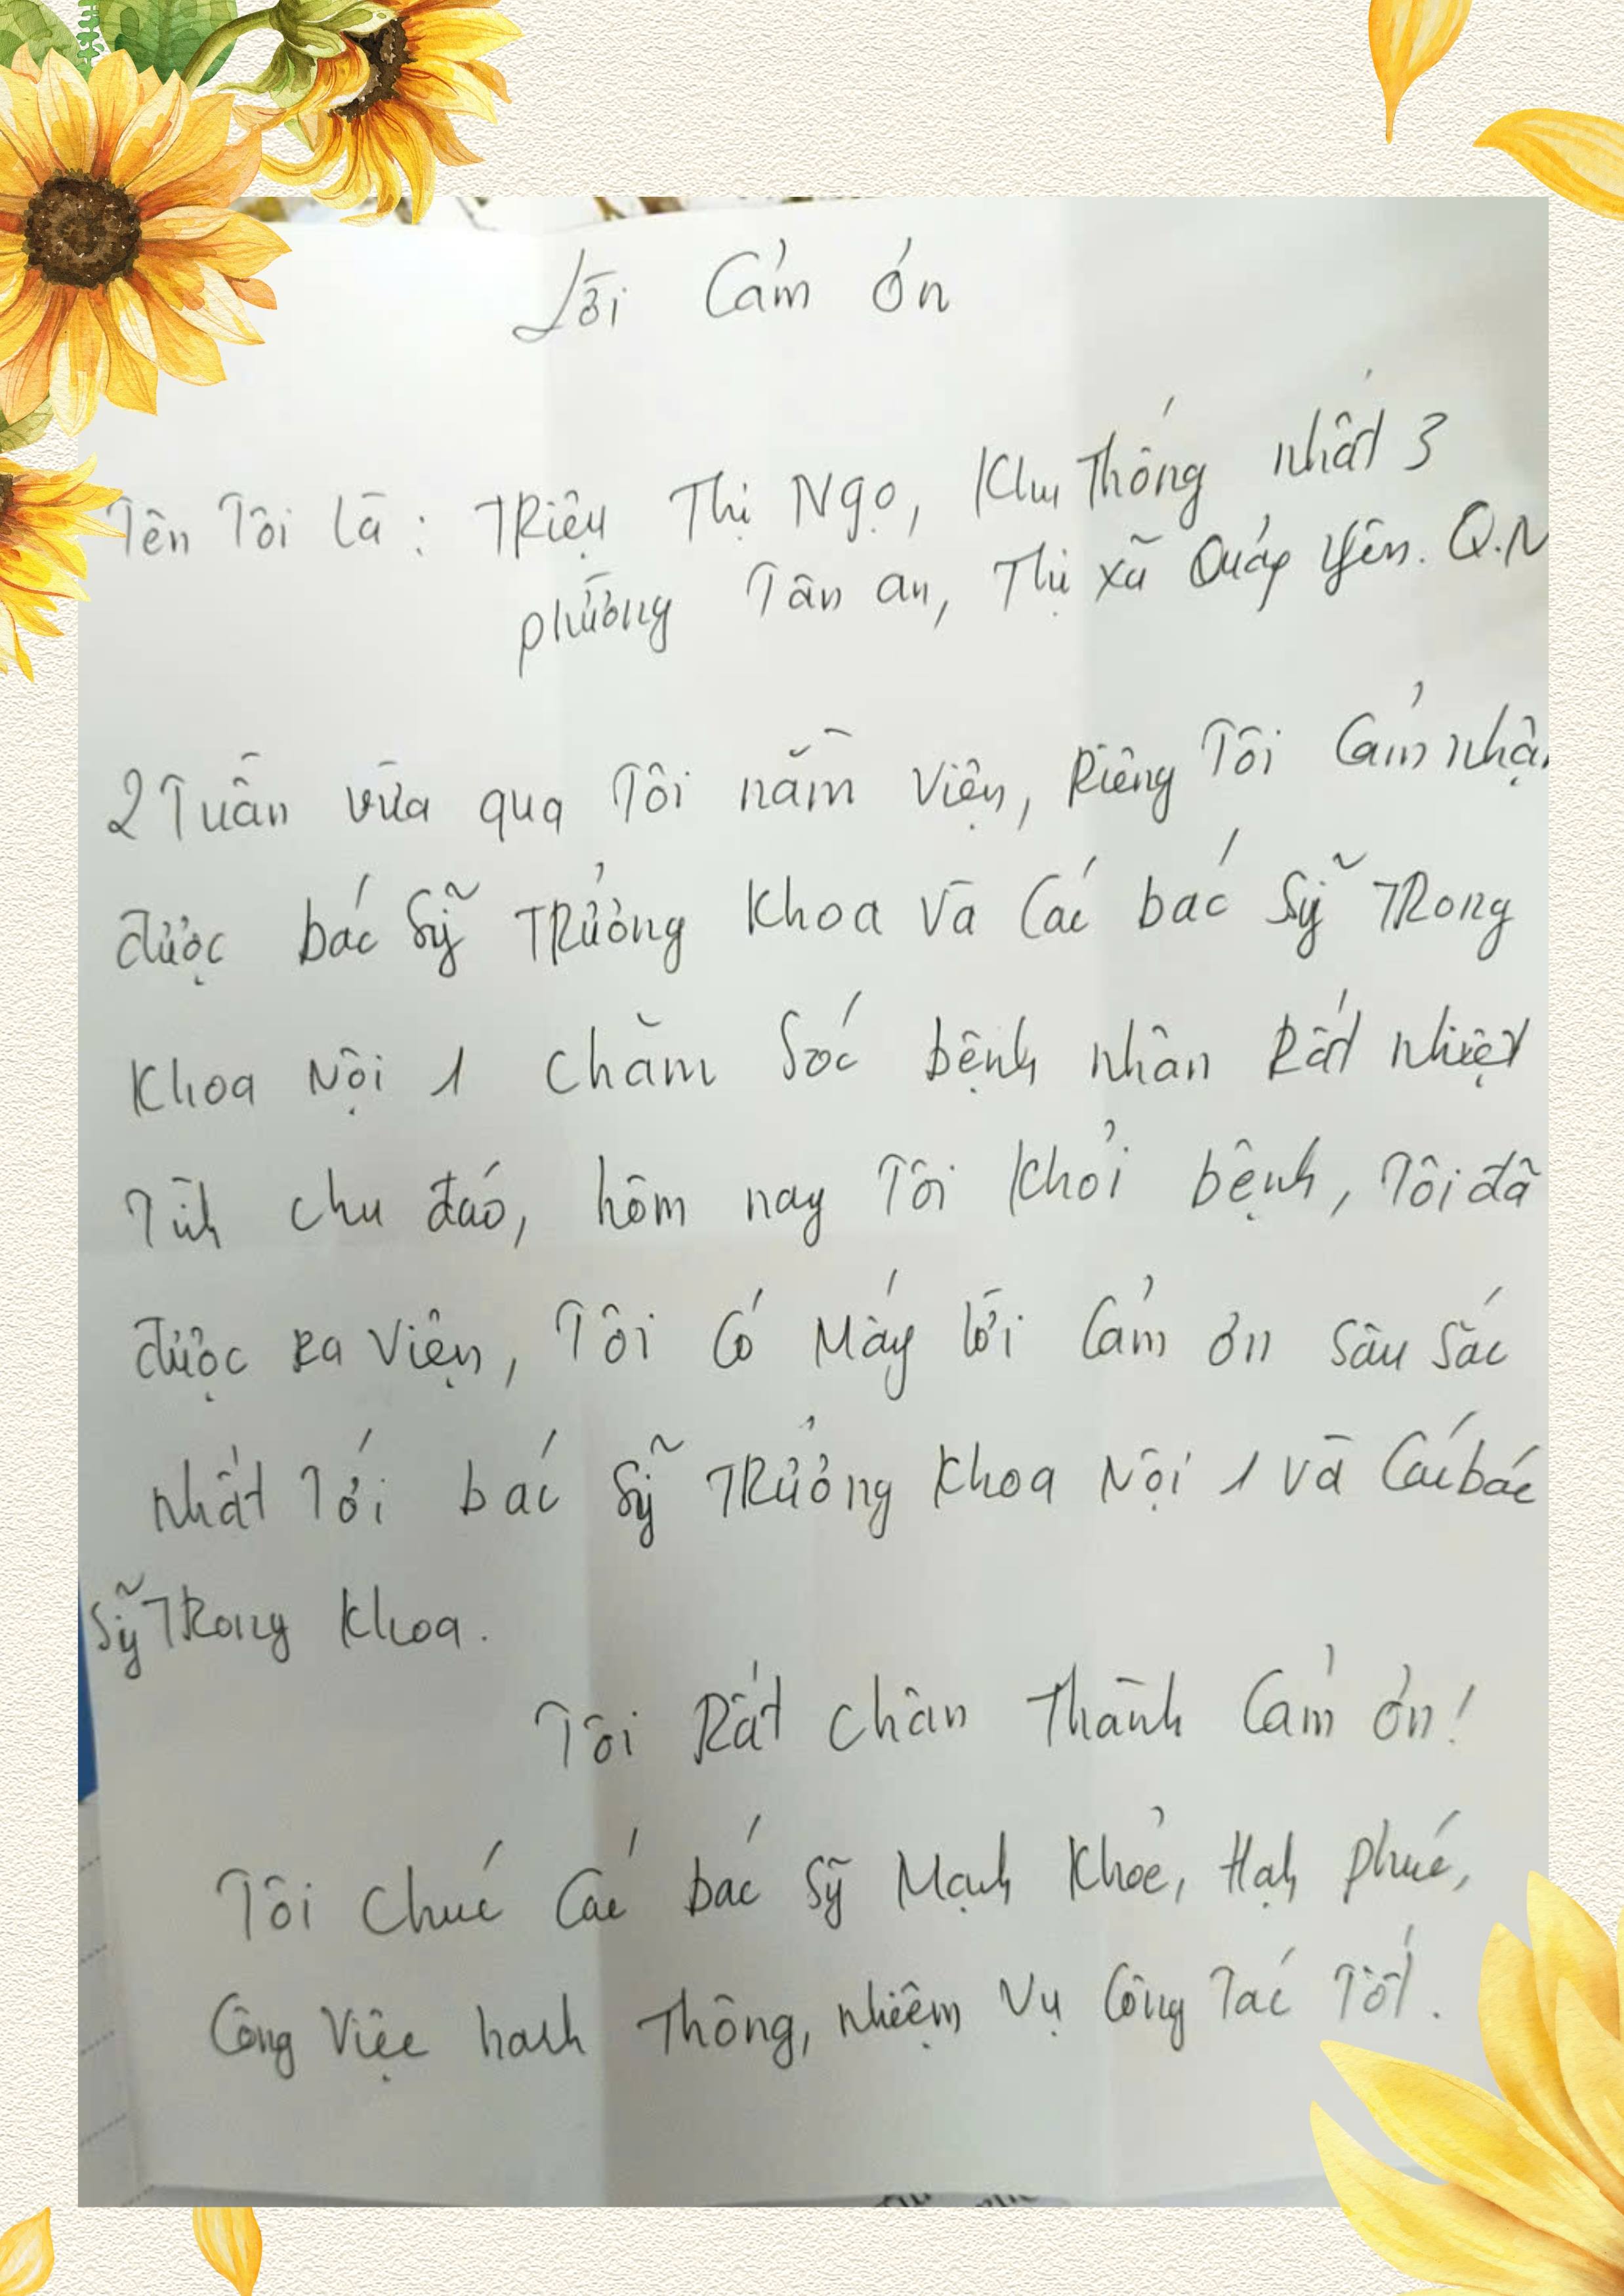 Lời Cảm ơn
Tên Tôi là : Triệu Thị Ngọ, Khu Thống nhất 3
phường Tân an, Thị xã Quảng Yên. Q.N
2 Tuần vừa qua Tôi nằm viện, Riêng Tôi Cảm nhận
được bác sỹ Trưởng Khoa và Các bác sỹ Trong
Khoa Nội 1 chăm sóc bệnh nhân Rất nhiệt
Tình chu đáo, hôm nay Tôi Khỏi bệnh, Tôi đã
được Ra viện, Tôi Có Mấy lời Cảm ơn sâu sắc
nhất Tới bác sỹ Trưởng Khoa Nội 1 và Các bác
sỹ Trong Khoa.
Tôi Rất chân Thành Cảm ơn!
Tôi chúc Các bác sỹ Mạnh Khỏe, Hạnh phúc,
Công việc hanh Thông, nhiệm vụ Công Tác Tốt.